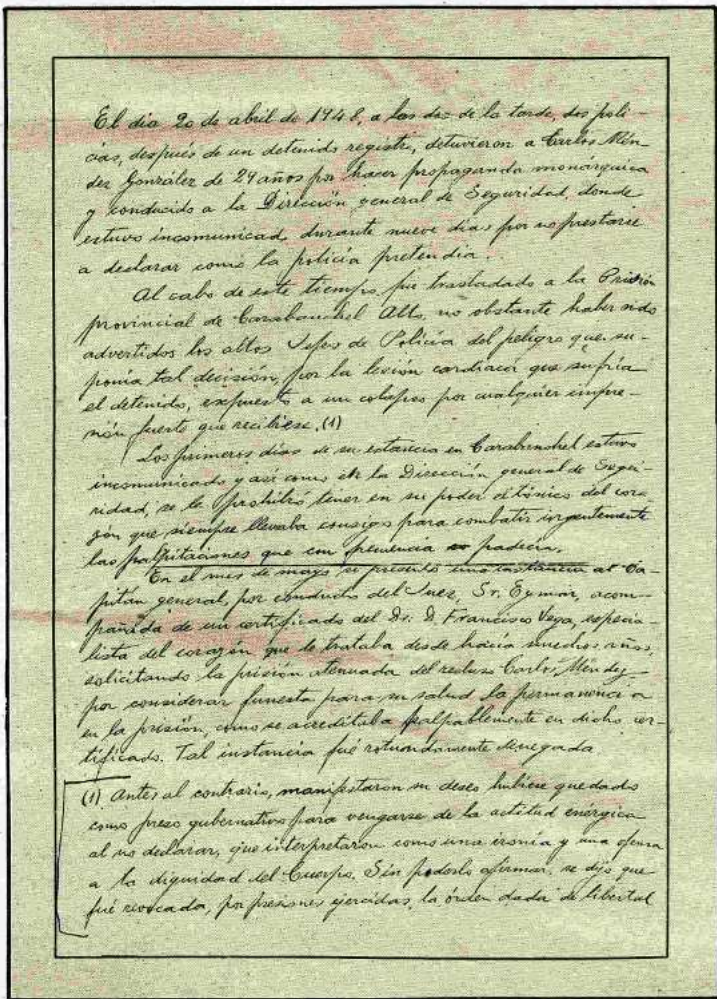 El día 20 de abril de 1948, a las dos de la tarde, dos poli-
cías, después de un detenido registro, detuvieron a Carlos Mén-
dez González de 29 años por hacer propaganda monárquica
y conducido a la Dirección general de Seguridad, donde
estuvo incomunicado durante nueve días por no prestarse
a declarar como la policía pretendía.
Al cabo de este tiempo fue trasladado a la Prisión
provincial de Carabanchel Alto, no obstante haber sido
advertidos los altos Jefes de Policía del peligro que su-
ponía tal decisión, por la lesión cardíaca que sufría
el detenido, expuesto a un colapso por cualquier impre-
sión fuerte que recibiese. (1)
Los primeros días de su estancia en Carabanchel estuvo
incomunicado y así como en la Dirección general de Segu-
ridad, se le prohibió tener en su poder el tónico del cora-
zón que siempre llevaba consigo para combatir urgentemente
las palpitaciones que con frecuencia padecía.
En el mes de mayo se presentó una instancia al Ca-
pitán general, por conducto del Juez, Sr. Eymar, acom-
pañada de un certificado del Dr. D. Francisco Vega, especia-
lista del corazón que le trataba desde hacía muchos años,
solicitando la prisión atenuada del recluso Carlos Méndez
por considerar funesta para su salud la permanencia
en la prisión, como se acreditaba palpablemente en dicho cer-
tificado. Tal instancia fué rotundamente denegada
(1) Antes al contrario, manifestaron su deseo hubiese quedado
como preso gubernativo para vengarse de la actitud enérgica
al no declarar, que interpretaron como una ironía y una ofensa
a la dignidad del Cuerpo. Sin poderlo afirmar, se dijo que
fué revocada, por presiones ejercidas, la órden dada de libertad